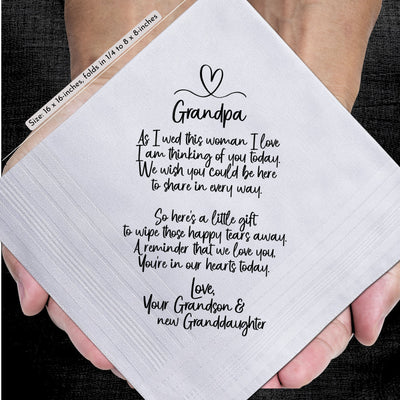 Size: 16 x 16-inches, folds in 1/4 to 8 x 8-inches
Grandpa
As I wed this woman I love
I am thinking of you today.
We wish you could be here
to share in every way.
So here's a little gift
to wipe those happy tears away.
A reminder that we love you.
You're in our hearts today.
Love,
Your Grandson &
new Granddaughter